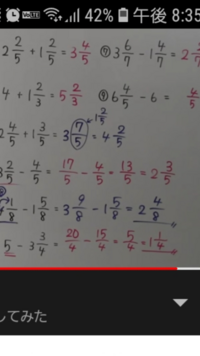 42% 午後 8:35
2 2/5 + 1 2/5 = 3 4/5 ⑦ 3 6/7 - 1 4/7 = 2 2/7
4 + 1 2/3 = 5 2/3 ⑨ 6 4/5 - 6 = 4/5
2 4/5 + 1 3/5 = 3 7/5 = 4 2/5 1 2/5
3 2/5 - 4/5 = 17/5 - 4/5 = 13/5 = 2 3/5
1/8 - 1 5/8 = 3 9/8 - 1 5/8 = 2 4/8
5 - 3 3/4 = 20/4 - 15/4 = 5/4 = 1 1/4
してみた